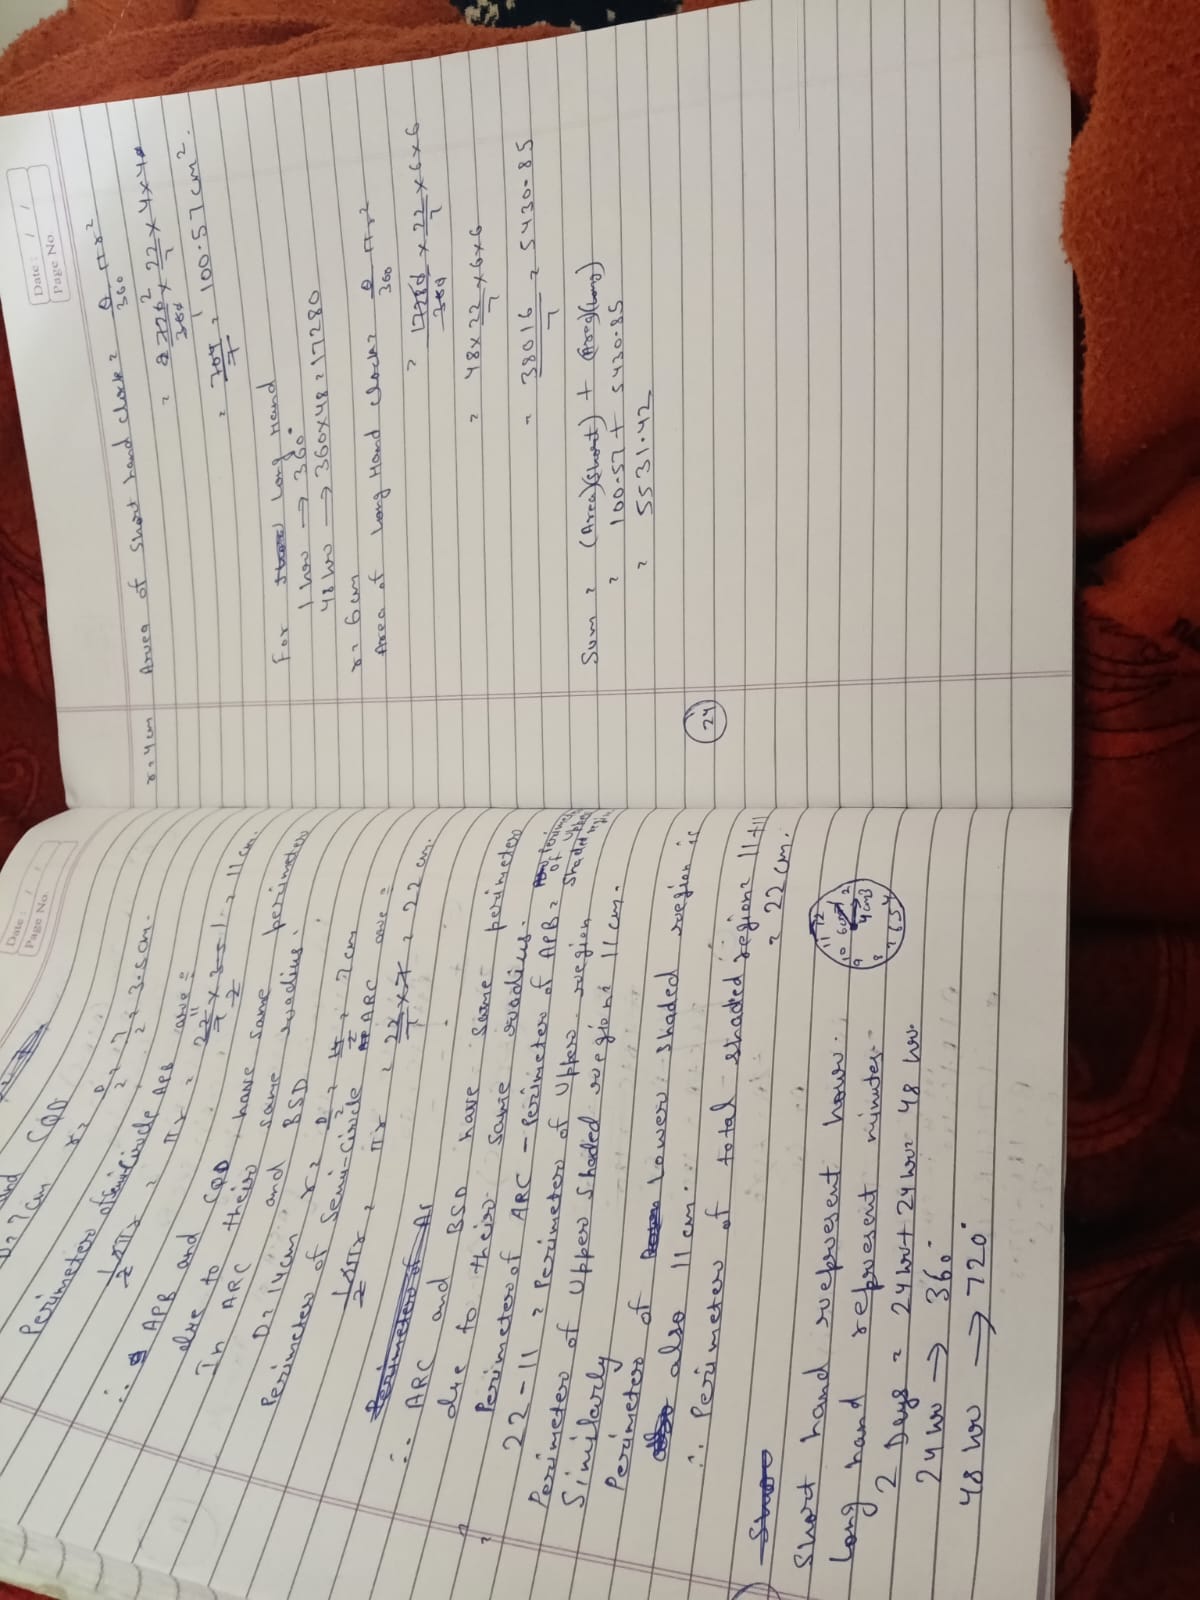 Date : / /
Page No
D = 7 cm CQD
r = D/2 = 7/2 = 3.5 cm.
Perimeter of semicircle APB are =
1/2 × 2πr = πr = 22/7 × 3.5 = 11 cm.
∴ APB and CQD have same perimeter
due to their same radius.
In ARC and BSD
D = 14 cm r = D/2 = 14/2 = 7 cm
Perimeter of Semi-Circle ARC are =
1/2 × 2πr = πr = 22/7 × 7 = 22 cm.
Perimeter of Ar
∴ ARC and BSD have same perimeter
due to their same radius.
Perimeter of ARC - Perimeter of APB = Perimeter of Upper Shaded region
22 - 11 = Perimeter of Upper region
Perimeter of Upper Shaded region = 11 cm.
Similarly
Perimeter of Lower shaded region is
also 11 cm.
∴ Perimeter of total shaded region = 11 + 11
= 22 cm.
Short
Short hand represent hour.
Long hand represent minutes.
2 Days = 24 hr + 24 hr = 48 hr
24 hr → 360°
48 hr → 720°
11 12
10 6cm 2
9 4cm 3
8 7 6 5 4
Date : / /
Page No
r = 4 cm Area of Short hand clock = θ/360 πr²
= 720/360 × 22/7 × 4 × 4
= 704/7 = 100.57 cm².
For Long Hand
1 hr → 360°
48 hr → 360 × 48 = 17280
r = 6 cm
Area of Long Hand clock = θ/360 πr²
= 17280/360 × 22/7 × 6 × 6
= 48 × 22/7 × 6 × 6
= 38016/7 = 5430.85
Sum = (Area)(Short) + (Area)(Long)
= 100.57 + 5430.85
= 5531.42
24